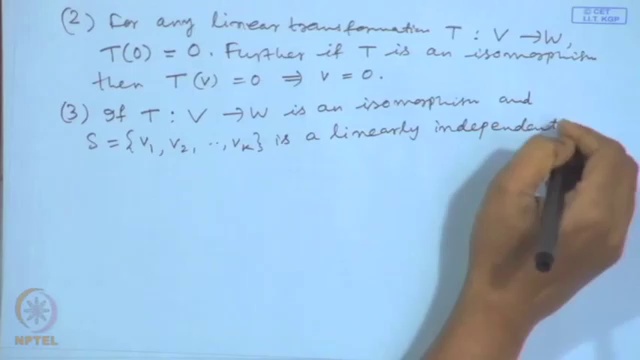 © CET
I.I.T. KGP
(2) For any linear transformation T : V → W,
T(0) = 0. Further if T is an isomorphism
then T(v) = 0 ⟹ v = 0.
(3) If T : V → W is an isomorphism and
S = {v₁, v₂, .., vₖ} is a linearly independant
NPTEL